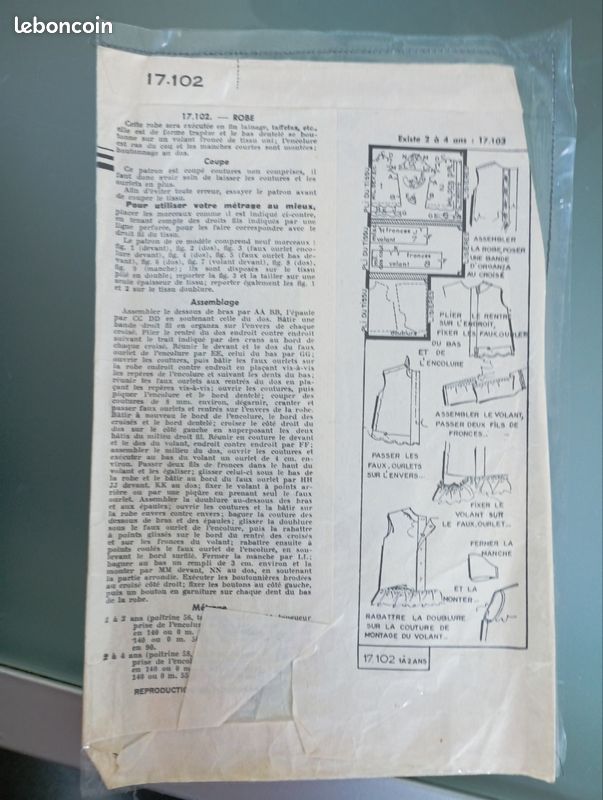 leboncoin
17.102
17.102. — ROBE
Cette robe sera exécutée en fin lainage, taffetas, etc.,
elle est de forme trapèze et le bas dentelé se bou-
tonne sur un volant froncé de tissu uni; l'encolure
est ras du cou et les manches courtes sont montées;
boutonnage au dos.
Coupe
Ce patron est coupé coutures non comprises, il
faut donc avoir soin de laisser les coutures et les
ourlets en plus.
Afin d'éviter toute erreur, essayer le patron avant
de couper le tissu.
Pour utiliser votre métrage au mieux,
placer les morceaux comme il est indiqué ci-contre,
en tenant compte des droits fils indiqués par une
ligne perforée, pour les faire correspondre avec le
droit fil du tissu.
Le patron de ce modèle comprend neuf morceaux :
fig. 1 (devant), fig. 2 (dos), fig. 3 (faux ourlet enco-
lure devant), fig. 4 (dos), fig. 5 (faux ourlet bas de-
vant), fig. 6 (dos), fig. 7 (volant devant), fig. 8 (dos),
fig. 9 (manche); ils sont disposés sur le tissu
plié en double; reporter la fig. 3 et la tailler sur une
seule épaisseur de tissu; reporter également les fig. 1
et 2 sur le tissu doublure.
Assemblage
Assembler le dessous de bras par AA BB, l'épaule
par CC DD en soutenant celle du dos. Bâtir une
bande droit fil en organza sur l'envers de chaque
croisé. Plier le rentré du dos endroit contre endroit
suivant le trait indiqué par des crans au bord de
chaque croisé. Réunir le devant et le dos du faux
ourlet de l'encolure par EE, celui du bas par GG;
ouvrir les coutures, puis bâtir les faux ourlets sur
la robe endroit contre endroit en plaçant vis-à-vis
les repères de l'encolure et suivant les dents du bas;
réunir les faux ourlets aux rentrés du dos en pla-
çant les repères vis-à-vis; ouvrir les coutures, puis
piquer l'encolure et le bord dentelé; couper des
coutures de 8 mm. environ, dégarnir, cranter et
passer faux ourlets et rentrés sur l'envers de la robe.
Bâtir à nouveau le bord de l'encolure, le bord des
croisés et le bord dentelé; croiser le côté droit du
dos sur le côté gauche en superposant les deux
bâtis du milieu droit fil. Réunir en couture le devant
et le dos du volant, endroit contre endroit par FF;
assembler le milieu du dos, ouvrir les coutures et
exécuter au bas du volant un ourlet de 4 cm. en-
viron. Passer deux fils de fronces dans le haut du
volant et les égaliser; glisser celui-ci sous le bas de
la robe et le bâtir au bord du faux ourlet par HH
JJ devant, KK au dos; fixer le volant à points ar-
rière ou par une piqûre en prenant seul le faux
ourlet. Assembler la doublure au-dessous des bras
et aux épaules; ouvrir les coutures et la bâtir sur
la robe envers contre envers; baguer la couture des
dessous de bras et des épaules; glisser la doublure
sous le faux ourlet de l'encolure, puis la rabattre
à points glissés sur le bord du rentré des croisés
et sur les fronces du volant; rabattre ensuite à
points coulés le faux ourlet de l'encolure, en sou-
levant le bord surfilé. Fermer la manche par LL;
baguer au bas un rempli de 3 cm. environ et la
monter par MM devant, NN au dos, en soutenant
la partie arrondie. Exécuter les boutonnières brodées
au croisé côté droit; fixer les boutons au côté gauche,
puis un bouton en garniture sur chaque dent du bas
de la robe.
1 à 2 ans (poitrine 56,
prise de l'encolur
en 140 ou 0 m.
140 ou 0 m.
en 90.
2 à 4 ans (poitrine 58,
prise de l'encol
en 140 ou 0 m
140 ou 0 m. 55
REPRODUCTI
Existe 2 à 4 ans : 17.103
PLI DU TISSU
LISIERES
fronces
volant 7
PLI DU TISSU
fronces
volant 8
PLI DU TISSU
doublure
ASSEMBLER
LA ROBE, POSER
UNE BANDE
D'ORGANZA
AU CROISÉ
PLIER LE RENTRÉ
SUR L'ENDROIT,
FIXER LES FAUX.OURLETS
DU BAS
ET DE
L'ENCOLURE
ASSEMBLER LE VOLANT,
PASSER DEUX FILS DE
FRONCES...
PASSER LES
FAUX.OURLETS
SUR L'ENVERS...
FIXER LE
VOLANT SUR
LE FAUX.OURLET...
FERMER LA
MANCHE
ET LA
MONTER...
RABATTRE LA DOUBLURE
SUR LA COUTURE DE
MONTAGE DU VOLANT...
17.102 1 À 2 ANS